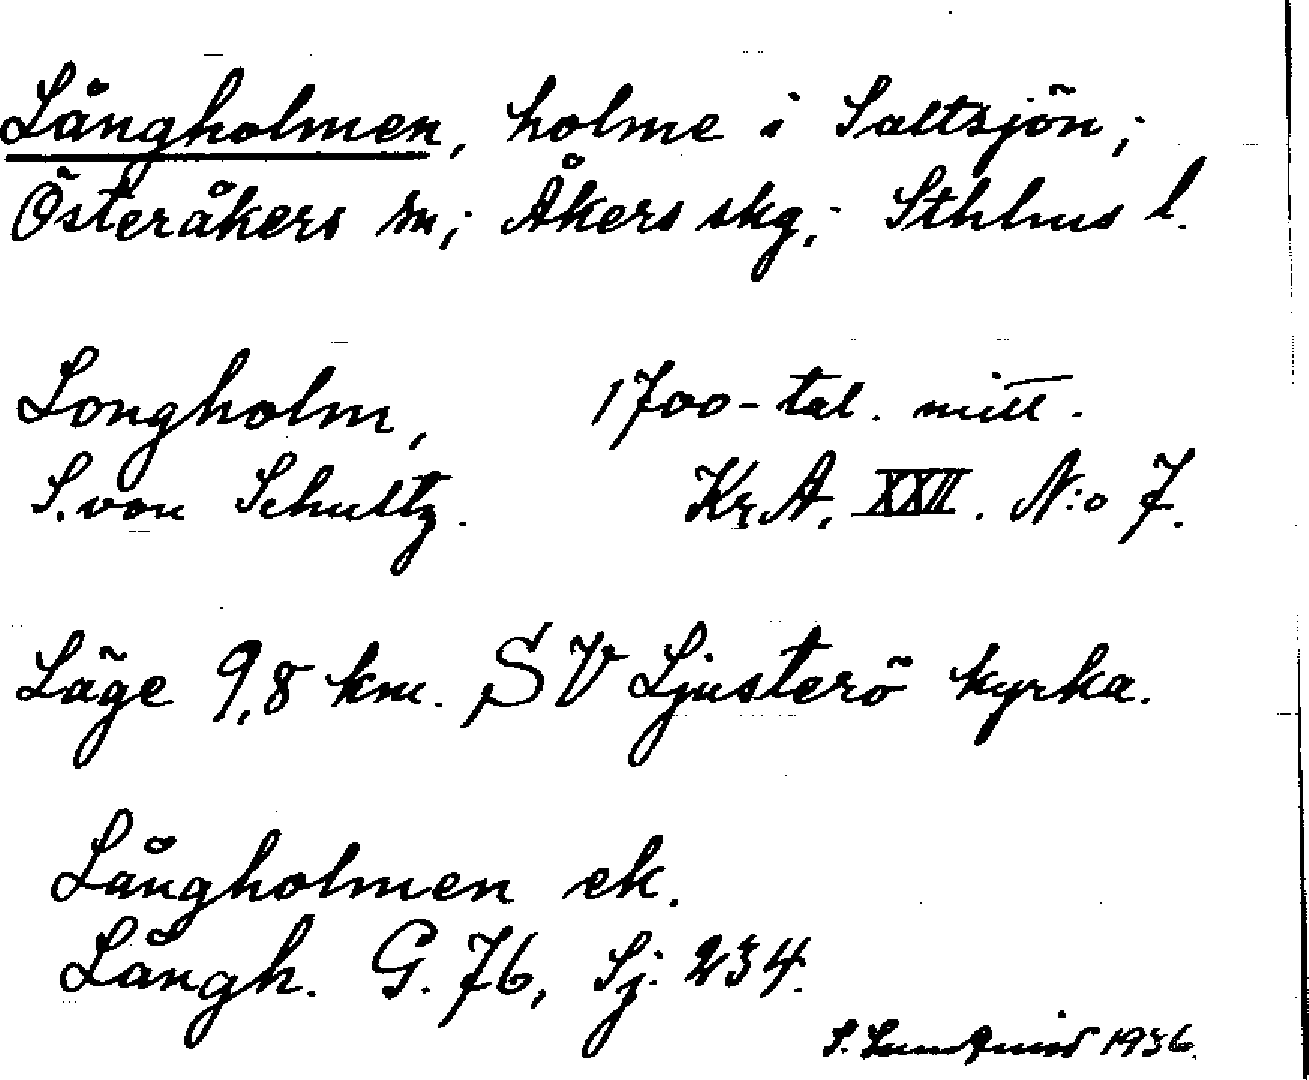 Långholmen, holme i Saltsjön;
Österåkers sn; Åkers skg; Sthlms l.
Longholm, 1700-tal. mitt.
S. von Schultz. Kr.A. XXII. N:o 7.
Läge 9,8 km. SV Ljusterö kyrka.
Långholmen ek.
Långh. G. 76, Sj. 234.
S. Lundqvist 1936.